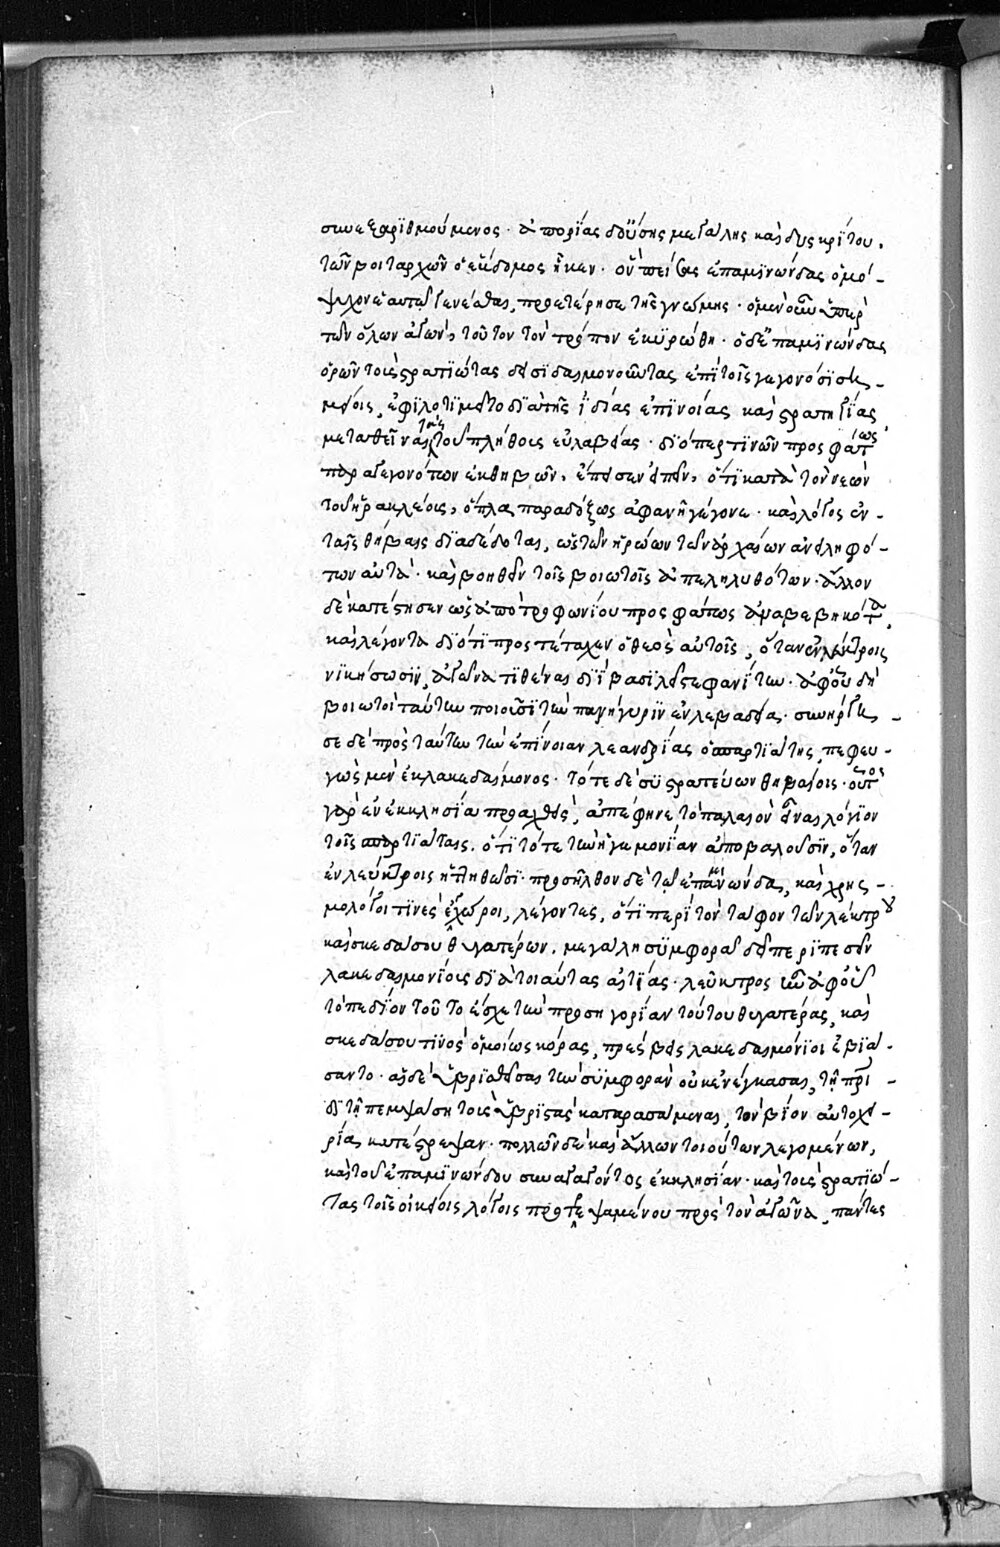 συνεξαριθμούμενος· ἀπορίας δ οὔσης μεγάλης καὶ δυσκρίτου,
τῶν βοιταρχῶν ὁ ἕβδομος ἧκεν· ὃν πείσας ἐπαμινώνδας ὁμό-
ψηφον ἑαυτῶ γενέσθαι, προετέρησε τῆ γνώμη· ὁ μὲν οὖν ὑπὲρ
τῶν ὅλων ἀγὼν, τοῦτον τὸν τρόπον ἐκυρώθη· ὁ δ ἐπαμινώνδας
ὁρῶν τοὺς στρατιώτας δεισιδαιμονοῦντας ἐπὶ τοῖς γεγονόσι ση-
μείοις, ἐφιλοτιμεῖτο διὰ τῆς ἰδίας ἐπινοίας καὶ στρατηγίας
μεταθεῖναι τὰς τοῦ πλήθους εὐλαβείας· διόπερ τινῶν προσφάτως
παραγεγονότων ἐκ θηβῶν, ἔπεισεν εἰπεῖν, ὅτι κατὰ τὸν νεὼν
τοῦ ἡρακλέους, ὅπλα παραδόξως ἀφανῆ γέγονε· καὶ λόγος ἐν
ταῖς θήβαις διαδέδοται, ὡς τῶν ἡρώων τῶν ἀρχαίων ἀνειληφό-
των αὐτὰ· καὶ βοηθεῖν τοῖς βοιωτοῖς ἀπεληλυθότων· ἄλλον
δὲ κατέστησεν ὡς ἀπὸ τροφωνίου προσφάτως ἀναβεβηκότα,
καὶ λέγοντα διότι προστέταχεν ὁ θεὸς αὐτοῖς, ὅταν ἐν λεύκτροις
νικήσωσιν, ἀγῶνα τιθέναι διὶ βασιλεῖ στεφανίτην· ἀφ οὗ δὴ
βοιωτοὶ ταύτην ποιοῦσι τὴν πανήγυριν ἐν λεβαδεία· συνήργη-
σε δὲ πρὸς ταύτην τὴν ἐπίνοιαν λεανδρίας ὁ σπαρτιάτης, πεφευ-
γὼς μὲν ἐκ λακεδαίμονος· τότε δὲ συστρατεύων θηβαίοις· οὗτος
γὰρ ἐν ἐκκλησία προαχθεὶς, ἀπέφηνε τὸ παλαιὸν εἶναι λόγιον
τοῖς σπαρτιάταις, ὅτι τότε τὴν ἡγεμονίαν ἀποβαλοῦσιν, ὅταν
ἐν λεύκτροις ἡττηθῶσι· προσῆλθον δὲ τῶ ἐπαμινώνδα, καὶ χρησ-
μολόγοι τινὲς ἐγχώριοι, λέγοντες, ὅτι περὶ τὸν τάφον τῶν λεύκτρου
καὶ σκεδάσου θυγατέρων, μεγάλη συμφορᾶ δεῖ περιπεσεῖν
λακεδαιμονίους διὰ τοιαύτας αἰτίας· λεῦκτρος ἦν ἀφ οὗ
τὸ πεδίον τοῦτο ἔσχε τὴν προσηγορίαν τούτου θυγατέρας, καὶ
σκεδάσου τινὸς ὁμοίως κόρας, πρέσβεις λακεδαιμόνιοι ἐβιά-
σαντο· αἱ δὲ ὑβρισθεῖσαι τὴν συμφορὰν οὐκ ἐνέγκασαι, τῆ πατρί-
δι τῆ πεμψάση τοὺς ὑβριστὰς καταρασάμεναι, τὸν βίον αὐτοχει-
ρία κατέστρεψαν· πολλῶν δὲ καὶ ἄλλων τοιούτων λεγομένων,
καὶ τοῦ ἐπαμινώνδου συναγαγόντος ἐκκλησίαν· καὶ τοὺς στρατιώ-
τας τοῖς οἰκείοις λόγοις προτρεψαμένου πρὸς τὸν ἀγῶνα, πάντες